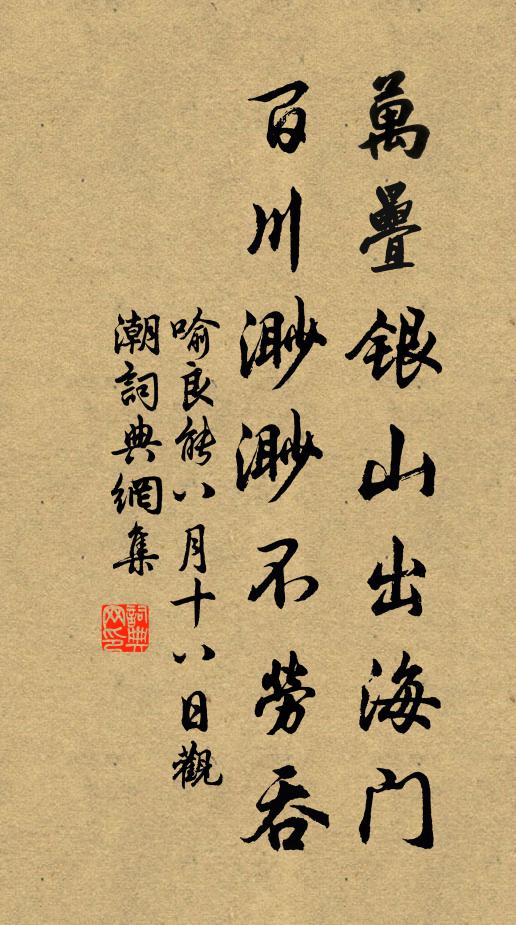 萬疊銀山出海门
百川渺渺不勞吞
喻良能八月十八日觀
潮詞典網集
詞典
网印